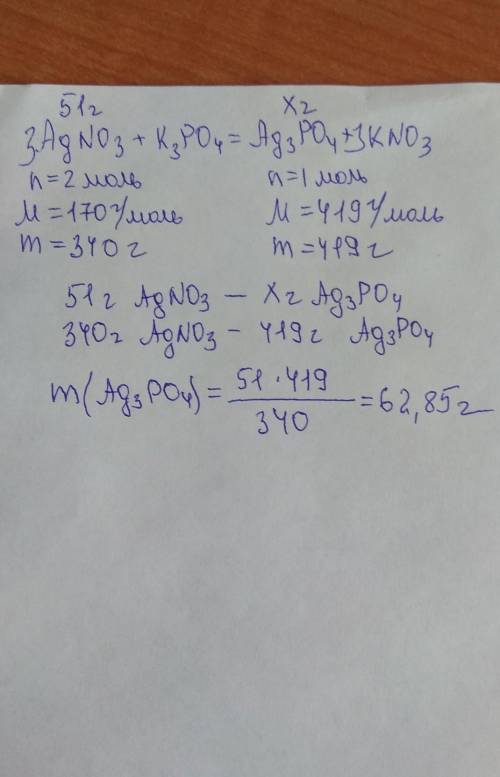 51г Xг
3AgNO3 + K3PO4 = Ag3PO4 + 3KNO3
n = 2 моль n = 1 моль
M = 170 г/моль M = 419 г/моль
m = 340 г m = 419 г
51 г AgNO3 — Xг Ag3PO4
340г AgNO3 - 419 г Ag3PO4
m(Ag3PO4) = 51 · 419 / 340 = 62,85 г